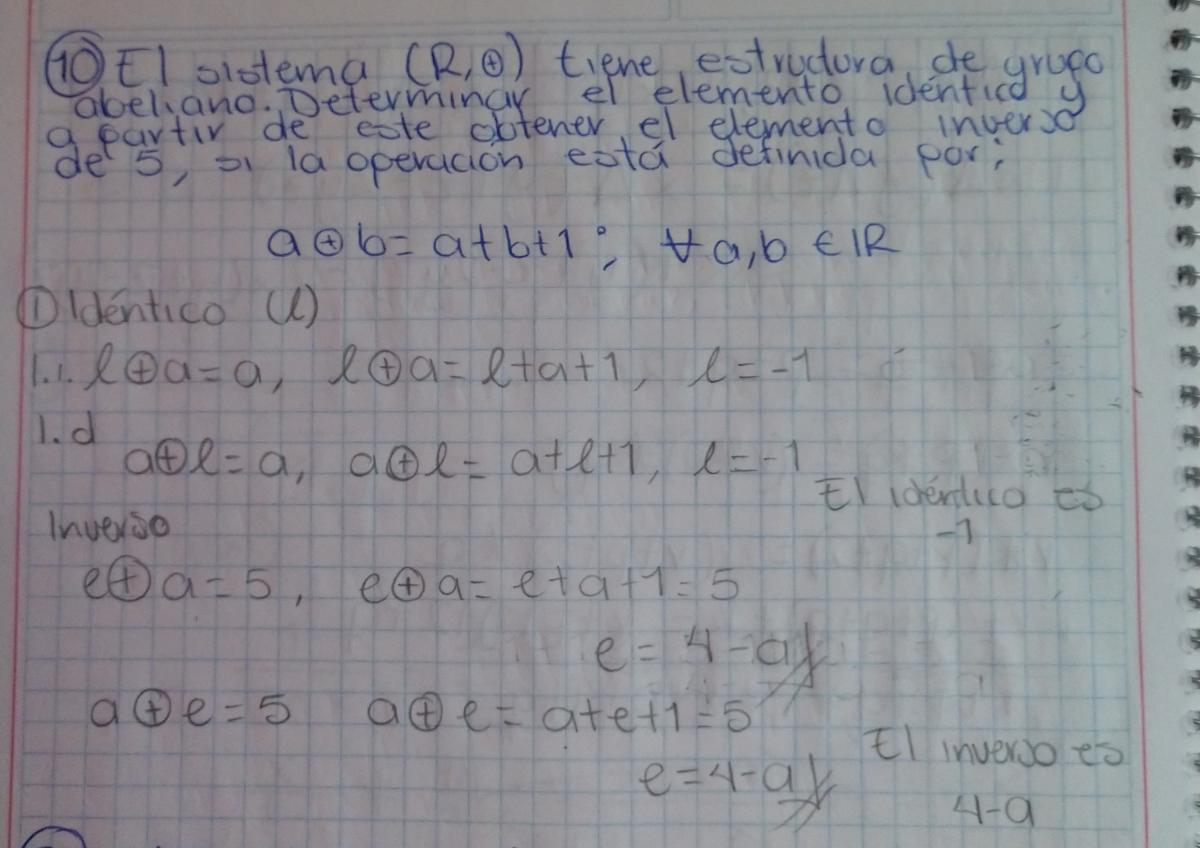 10 El sistema (R,⊕) tiene estructura de grupo
abeliano. Determinar el elemento idéntico y
a partir de este obtener el elemento inverso
de 5, si la operación está definida por:
a⊕b = a+b+1 ; ∀a,b ∈ IR
① Idéntico (l)
1.i. l⊕a=a, l⊕a= l+a+1, l=-1
1.d
a⊕l=a, a⊕l= a+l+1, l=-1
El idéntico es
-1
Inverso
e⊕a=5, e⊕a= e+a+1=5
e = 4-a
a⊕e=5 a⊕e= a+e+1=5
e=4-a
El inverso es
4-a